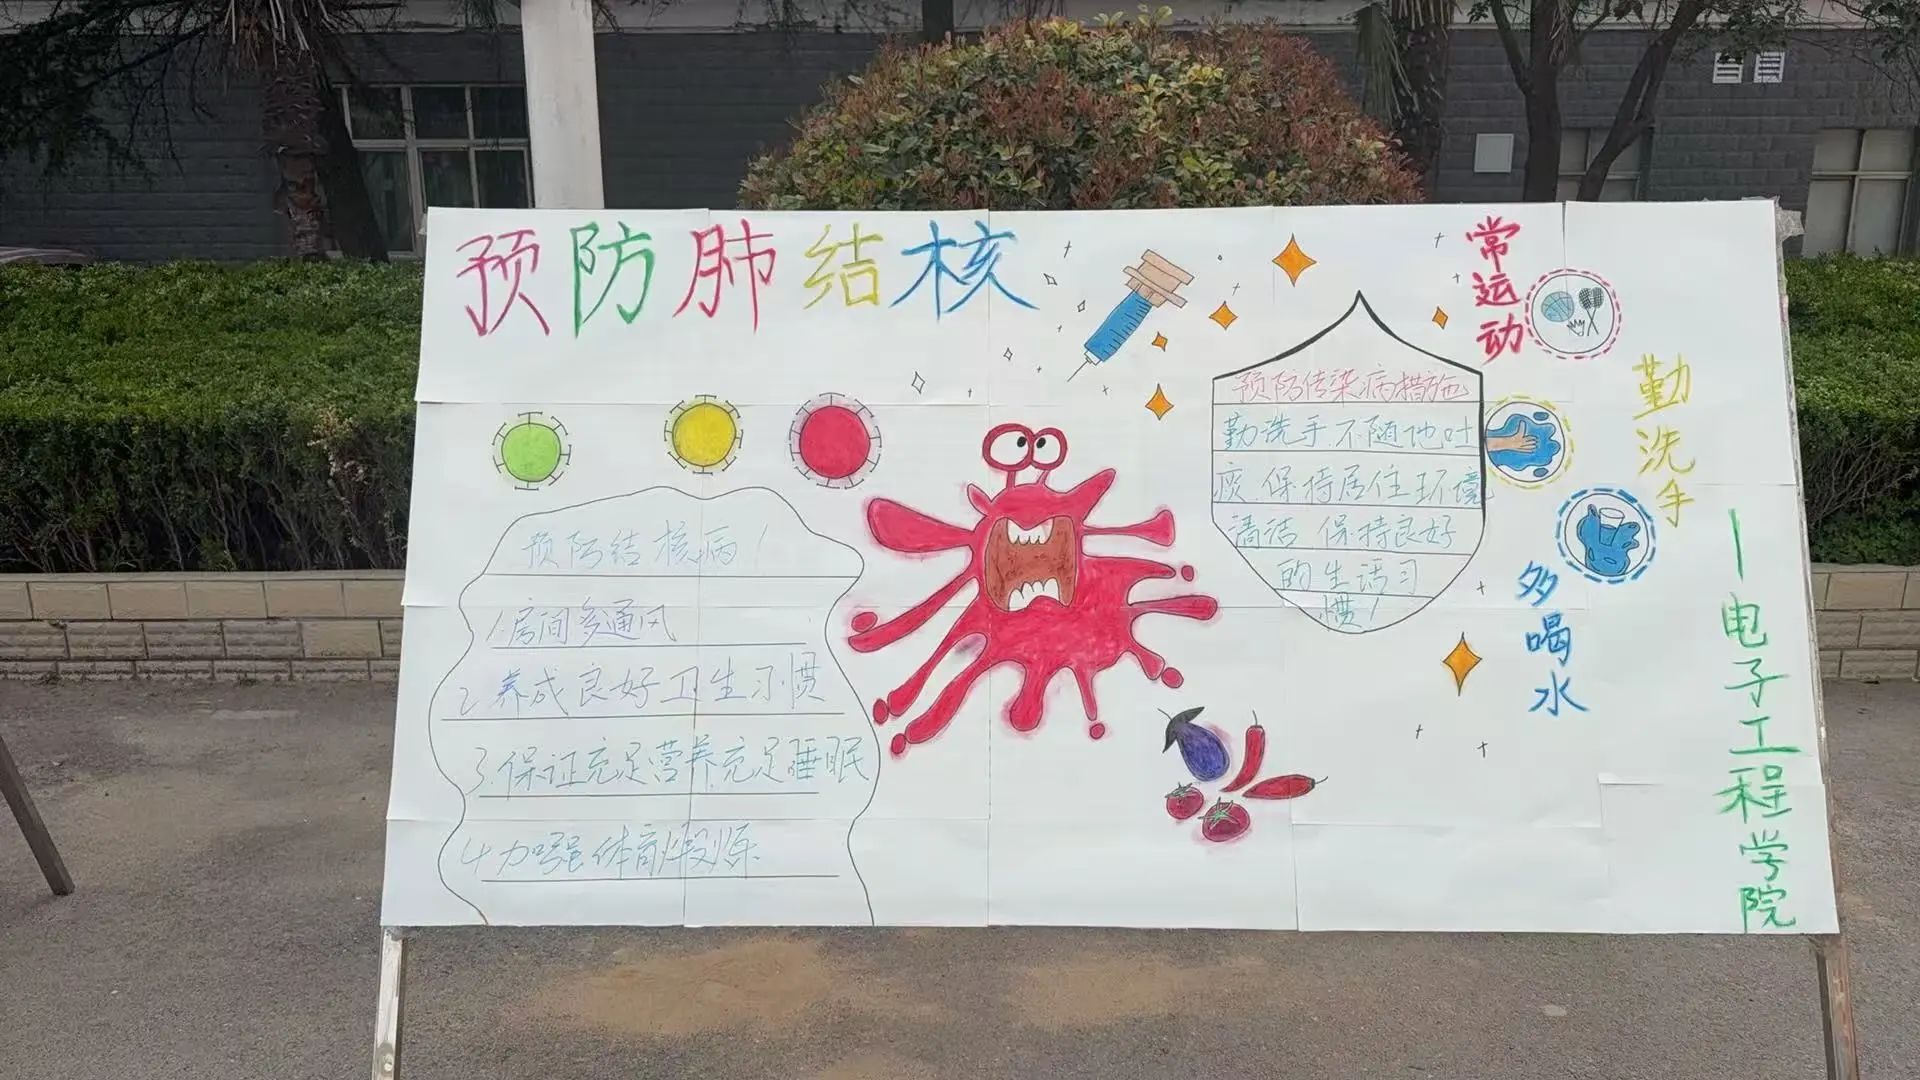 预防肺结核
预防结核病！
1.房间多通风
2.养成良好卫生习惯
3.保证充足营养.充足睡眠
4.加强体育煅炼
预防传染病措施
勤洗手不随地吐
痰.保持居住环境
清洁 保持良好
的生活习
惯！
常运动
勤洗手
多喝水
—电子工程学院